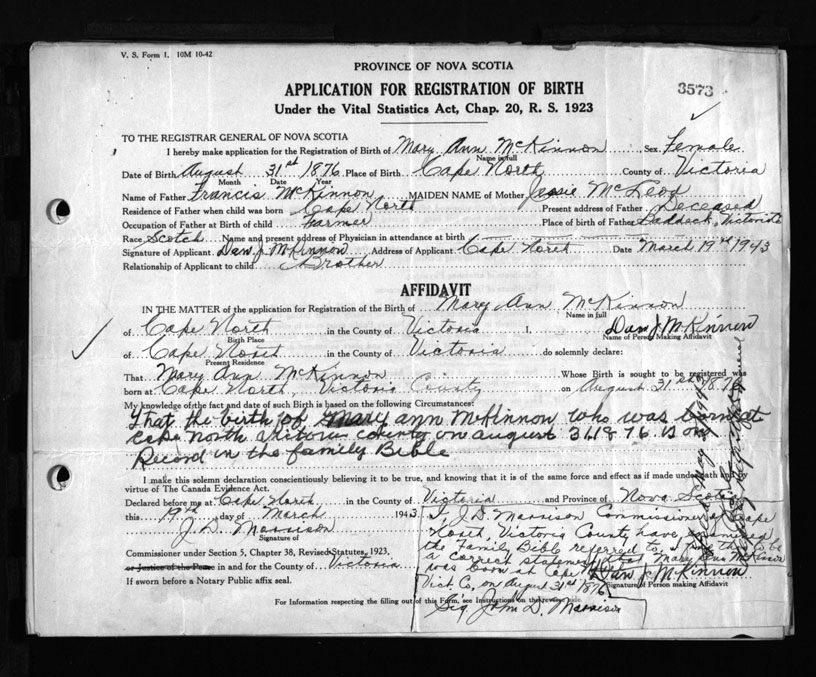 V. S. Form 1. 10M 10-42
PROVINCE OF NOVA SCOTIA
APPLICATION FOR REGISTRATION OF BIRTH
3573
Under the Vital Statistics Act, Chap. 20, R. S. 1923
TO THE REGISTRAR GENERAL OF NOVA SCOTIA
I hereby make application for the Registration of Birth of Mary Ann McKinnon Sex Female
Name in full
Date of Birth August 31st 1876 Place of Birth Cape North County of Victoria
Month Date Year
Name of Father Francis McKinnon MAIDEN NAME of Mother Jessie McLeod
Residence of Father when child was born Cape North Present address of Father Deceased
Occupation of Father at Birth of child Farmer Place of birth of Father Baddeck, Victoria
Race Scotch Name and present address of Physician in attendance at birth
Signature of Applicant Dan J. McKinnon Address of Applicant Cape North Date March 19th 1943
Relationship of Applicant to child Brother
AFFIDAVIT
IN THE MATTER of the application for Registration of the Birth of Mary Ann McKinnon
Name in full
of Cape North in the County of Victoria I, Dan J McKinnon
Birth Place Name of Person Making Affidavit
of Cape North in the County of Victoria do solemnly declare:
Present Residence
That Mary Ann McKinnon Whose Birth is sought to be registered was
born at Cape North, Victoria County on August 31st 1876
My knowledge of the fact and date of such Birth is based on the following Circumstances:
That the birth of Mary ann McKinnon who was born at
Cape North Victoria county on august 31.1876. is on
Record in the family Bible
I make this solemn declaration conscientiously believing it to be true, and knowing that it is of the same force and effect as if made under oath and by
virtue of The Canada Evidence Act.
Declared before me at Cape North in the County of Victoria and Province of Nova Scotia
this 19th day of March 1943
J. D. Morrison
Signature of
Commissioner under Section 5, Chapter 38, Revised Statutes, 1923,
or Justice of the Peace in and for the County of Victoria
If sworn before a Notary Public affix seal.
I, J.D. Morrison Commissioner of Cape
North, Victoria County have examined
the Family Bible referred to
a correct statement that Mary Ann McKinnon
was born at Cape
Vict. Co, on August 31st 1876
Dan J McKinnon
Signature of Person making Affidavit
For Information respecting the filling out of this Form, see Instructions on the reverse side.
Sig. John D. Morrison